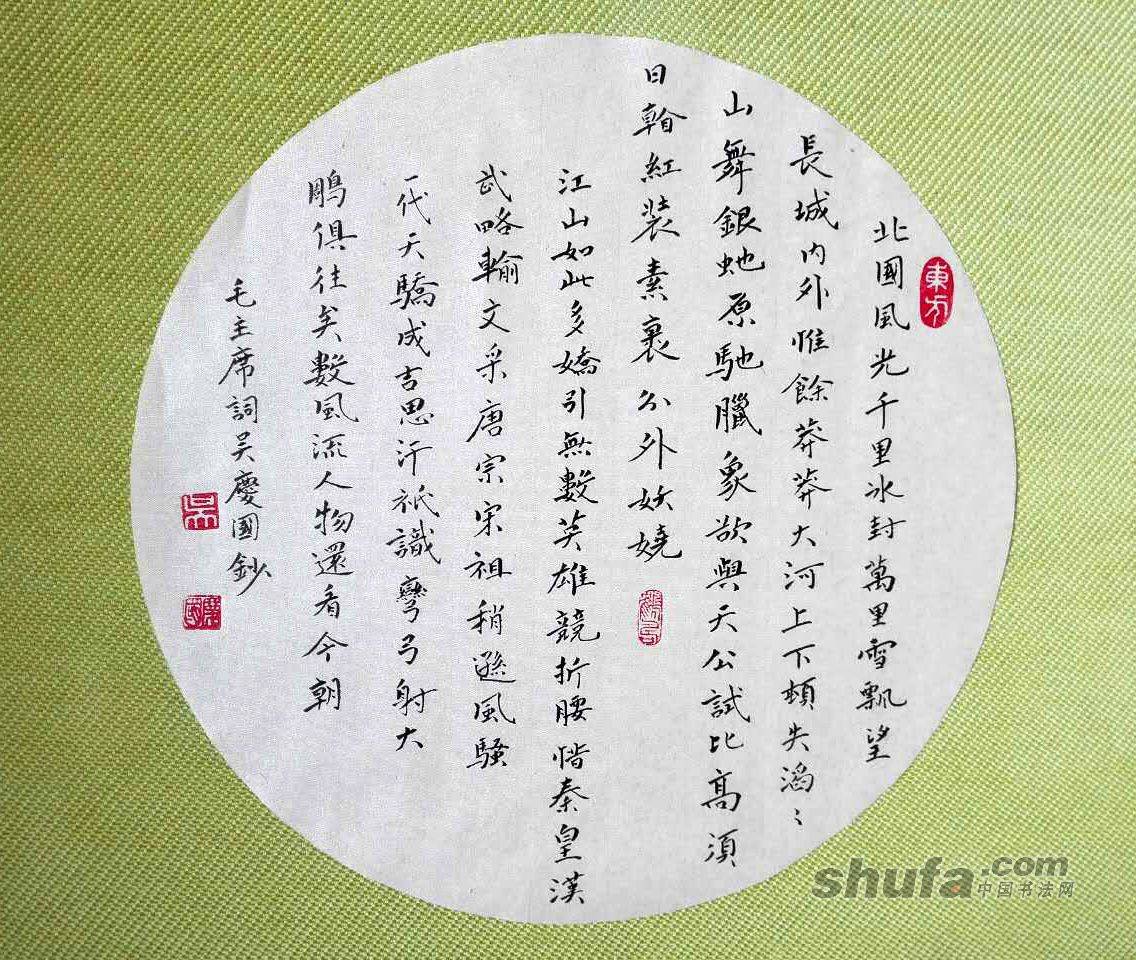 東方
北國風光千里冰封萬里雪飄望
長城内外惟餘莽莽大河上下頓失滔〻
山舞銀虵原馳臘象欲與天公試比高須
日紅裝素裹分外妖嬈
江山如此多嬌引無數英雄競折腰惜秦皇漢
武略輸文采唐宗宋祖稍遜風騷
一代天驕成吉思汗祇識彎弓射大
鵰俱往矣數風流人物還看今朝
毛主席詞吳慶國鈔
吳
慶國
shufa.com
中国书法网